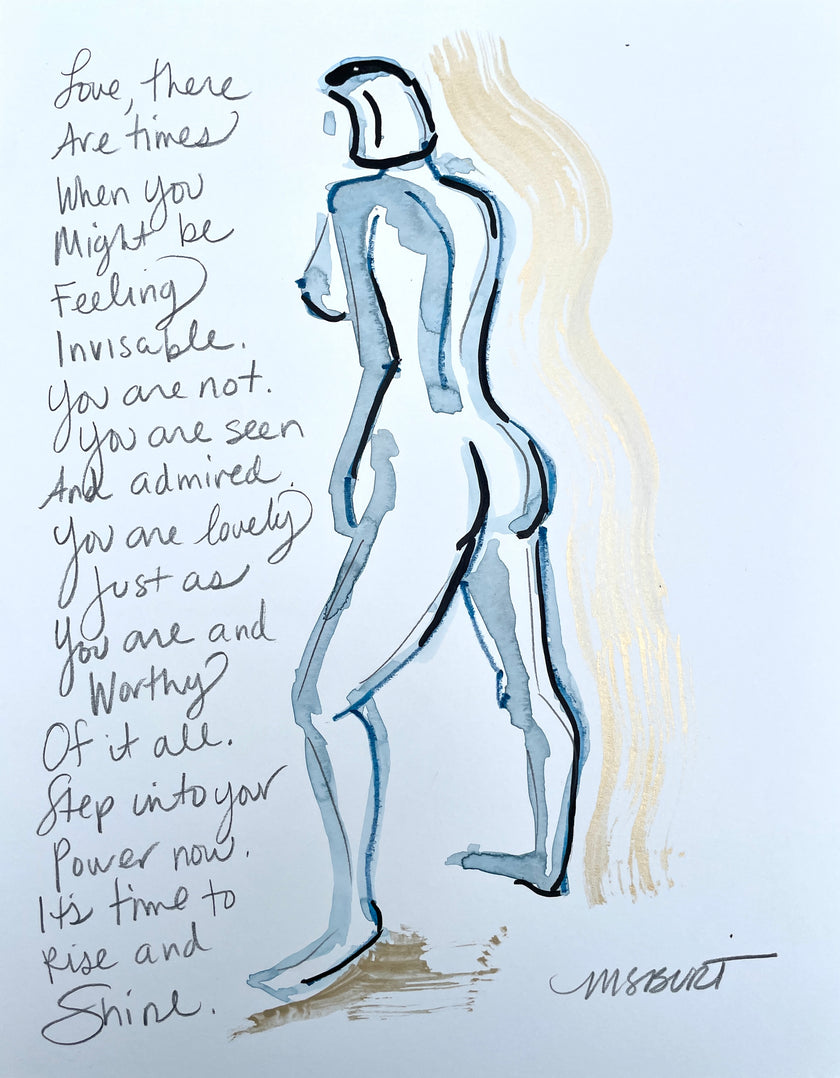 Love, there
Are times
When you
Might be
Feeling
Invisable.
You are not.
You are seen
And admired.
You are lovely
Just as
You are and
Worthy
Of it all.
Step into your
Power now.
It's time to
Rise and
Shine.
MSBURT